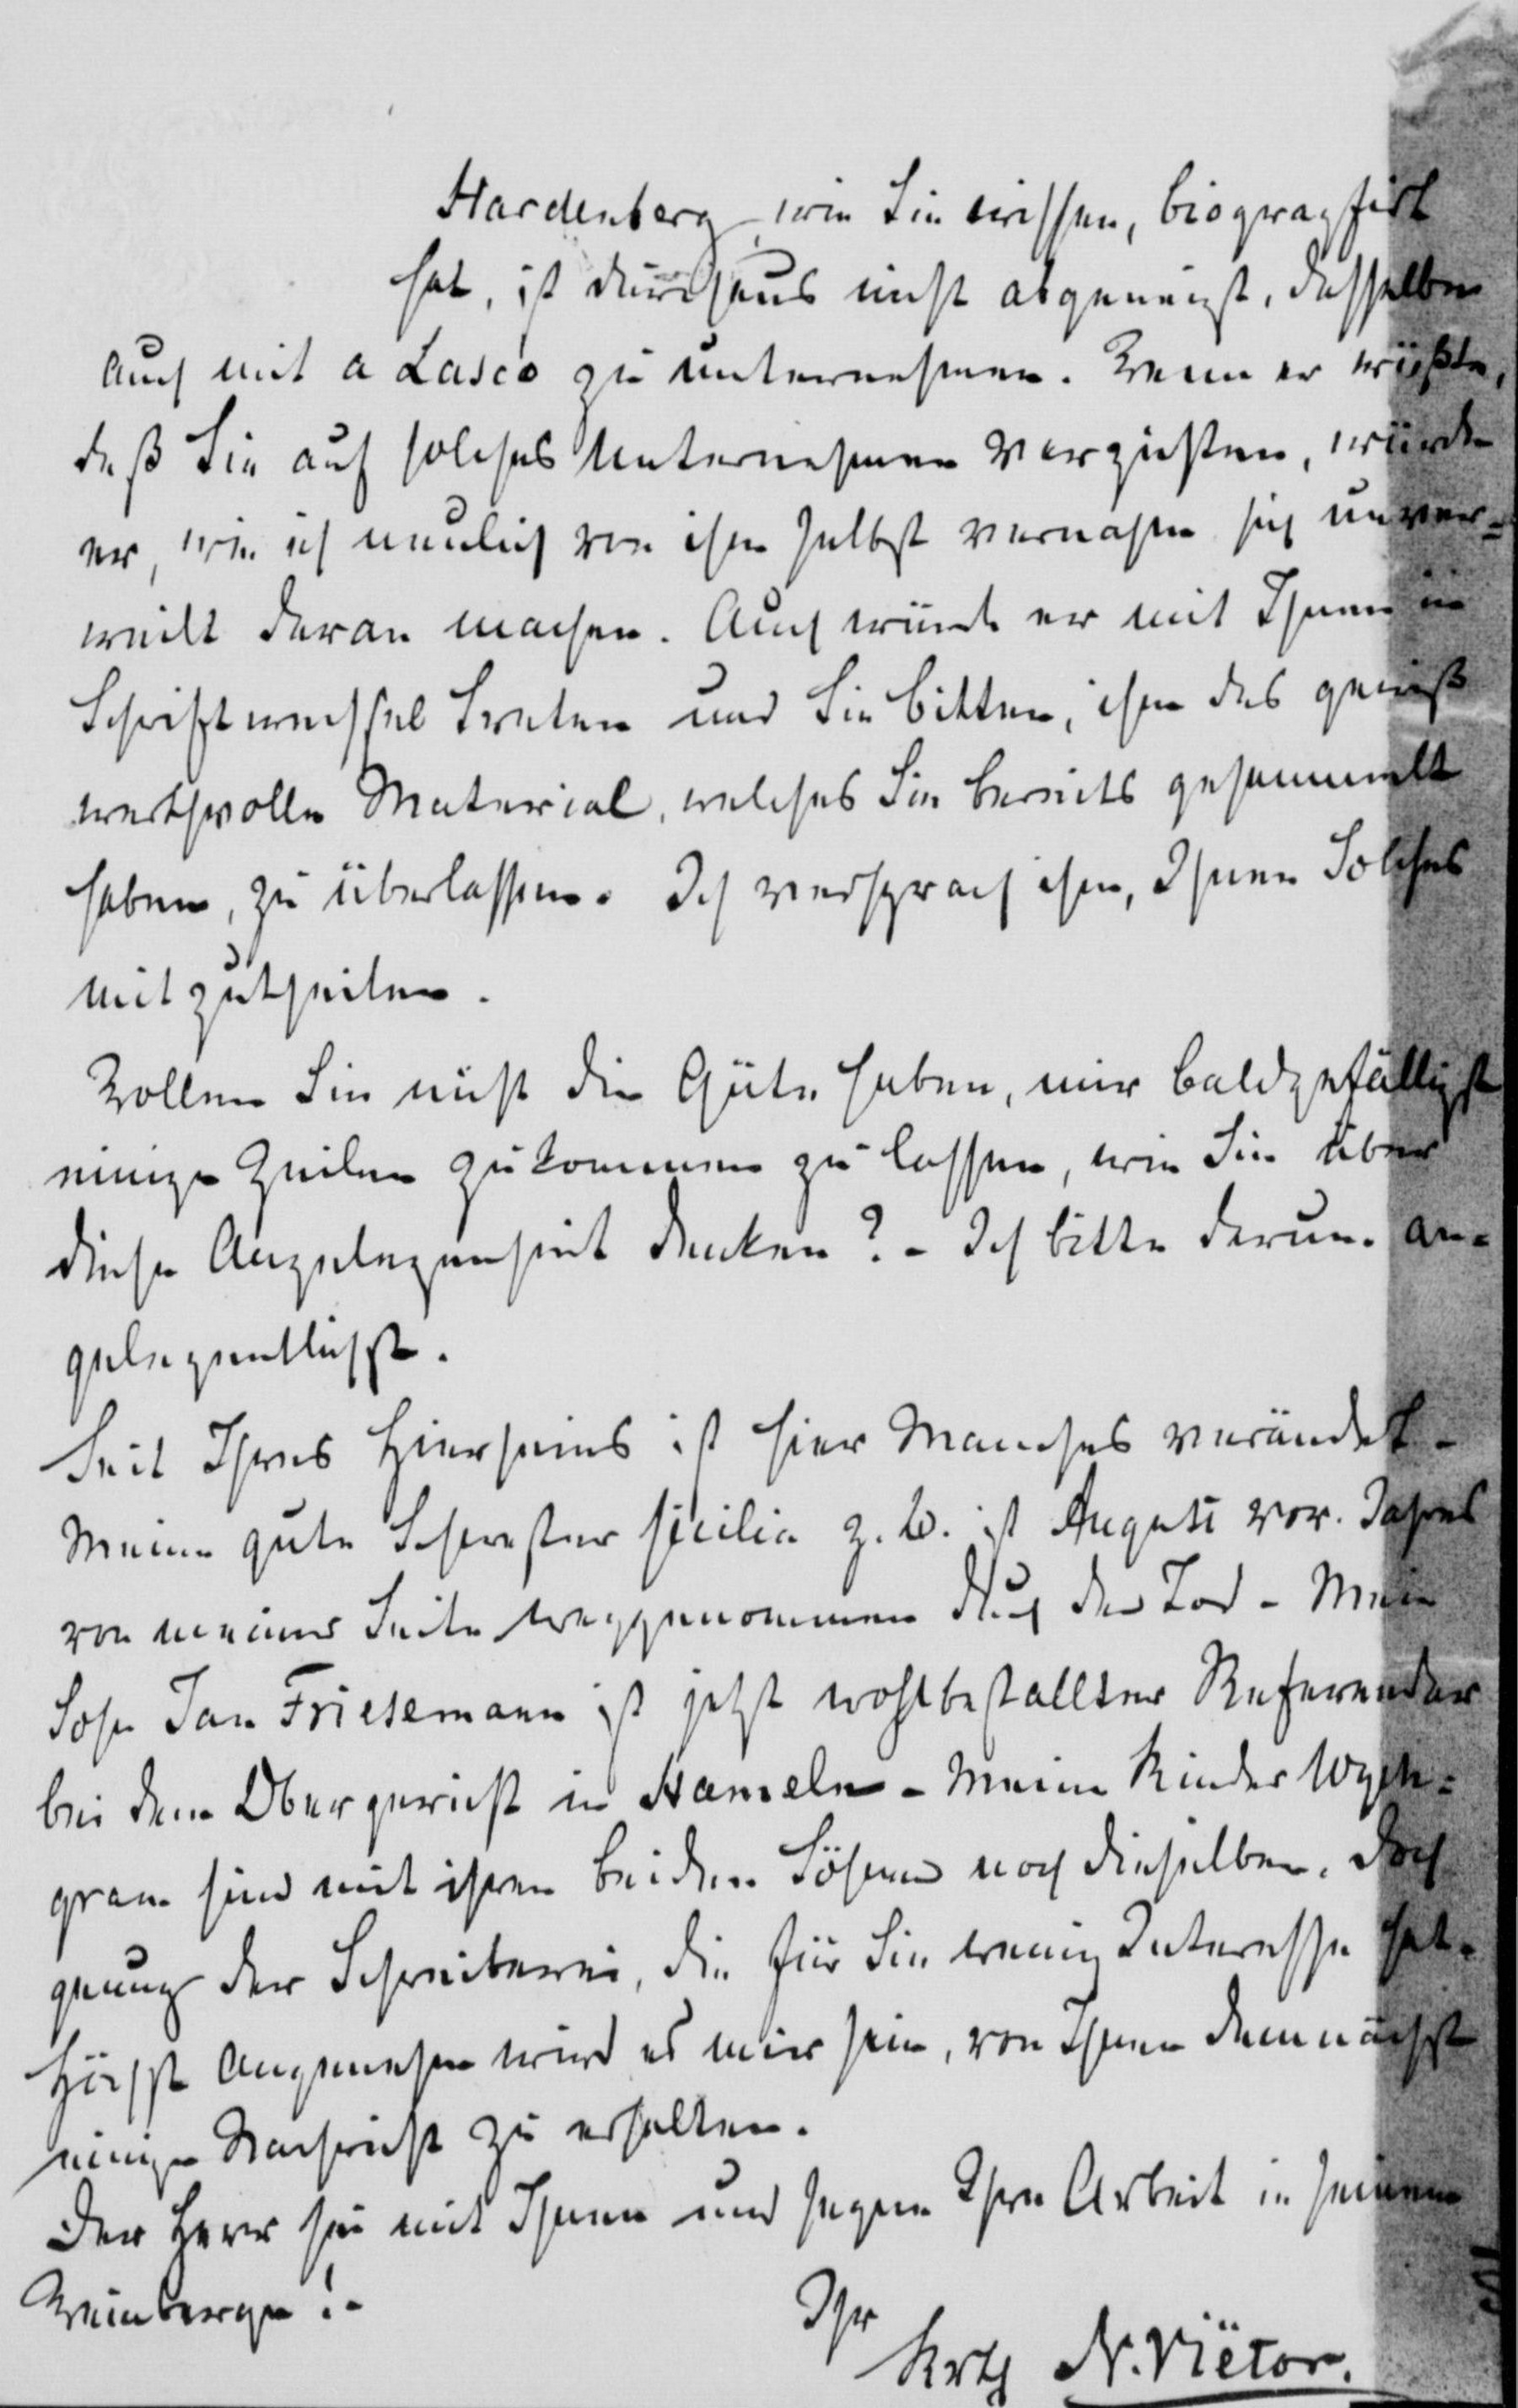 Hardenberg, wie Sie wissen, biografirt
hat, ist durchaus nicht abgeneigt, dasselbe
auch mit a Lasco zu unternehmen. Wenn er wüßte,
daß Sie auf solches Unternehmen verzichten, würde
er, wie ich neulich von ihm selbst vernahm sich unver=
weilt daran machen. Auch würde er mit Ihnen in
Schriftwechsel treten und Sie bitten, ihm das gewiß
werthvolle Material, welches Sie bereits gesammelt
haben, zu überlassen. Ich versprach ihm, Ihnen Solches
mitzutheilen.
Wollen Sie nicht die Güte haben, mir baldgefälligst
einige Zeilen zukommen zu lassen, wie Sie über
diese Angelegenheit denken? - Ich bitte darum an=
gelegentlichst.
Seit Ihres Hierseins ist hier Manches verändert -
Meine gute Schwester z. B. ist August vor. Jahres
von meiner Seite weggenommen durch den Tod - Mein
Sohn Jan Friesemann ist jetzt wohlbestallter Referendar
bei dem Obergericht in Hameln - Meine Kinder Wych=
gram sind mit ihren beiden Söhnen noch dieselben. Doch
genug der Schreiberei, die für Sie wenig Interesse hat.
Höchst angenehm wird es mir sein, von Ihnen demnächst
einige Nachricht zu erhalten.
Der Herr sei mit Ihnen und segne Ihre Arbeit in seinem
Weinberge! -
Ihr
N. Viëtor.